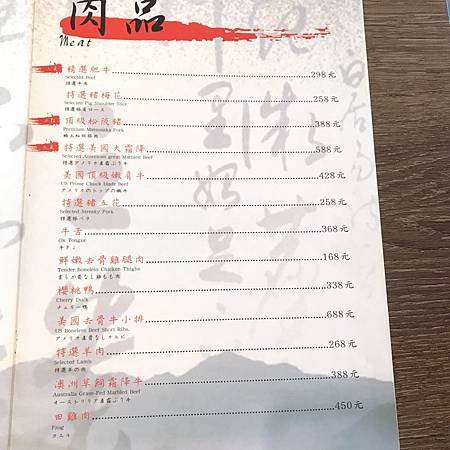 肉品
Meat
精選肥牛 298元
Selected Beef
特選牛肉
特選豬梅花 258元
Selected Pig Shoulder Slice
特選豚肩ロース
頂級松阪豬 388元
Premium Matsusaka Pork
特選美國大霜降 588元
Selected American grain Marbled Beef
特選アメリカ産霜ふり牛
美國頂級嫩肩牛 428元
US Prime Chuck blade Beef
アメリカのトップの嫩牛
特選豬五花 258元
Selected Streaky Pork
特選豚バラ
牛舌 368元
Ox Tongue
牛タン
鮮嫩去骨雞腿肉 168元
Tender Boneless Chicken Thighs
柔らか骨なし鶏もも肉
櫻桃鴨 338元
Cherry Duck
チェリー鴨
美國去骨牛小排 688元
US Boneless Beef Short Ribs.
アメリカ産骨なしカルビ
特選羊肉 268元
Selected Lamb
特選羊の肉
澳洲草飼霜降牛 388元
Australia Grass-Fed Marbled Beef
オーストラリア産霜ふり牛
田雞肉 450元
Frog
カエル